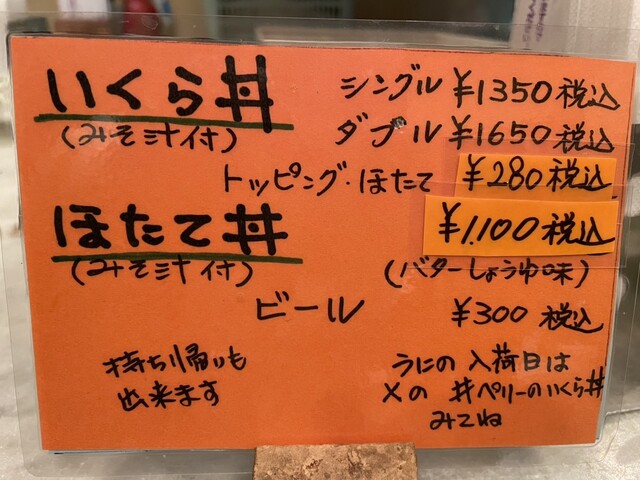 いくら丼 シングル ¥1350税込
(みそ汁付) ダブル ¥1650税込
トッピング・ほたて ¥280税込
ほたて丼 ¥1,100税込
(みそ汁付) (バターしょうゆ味)
ビール ¥300税込
持ち帰りも
出来ます
うにの入荷日は
Xの 丼ペリーのいくら丼
みてね